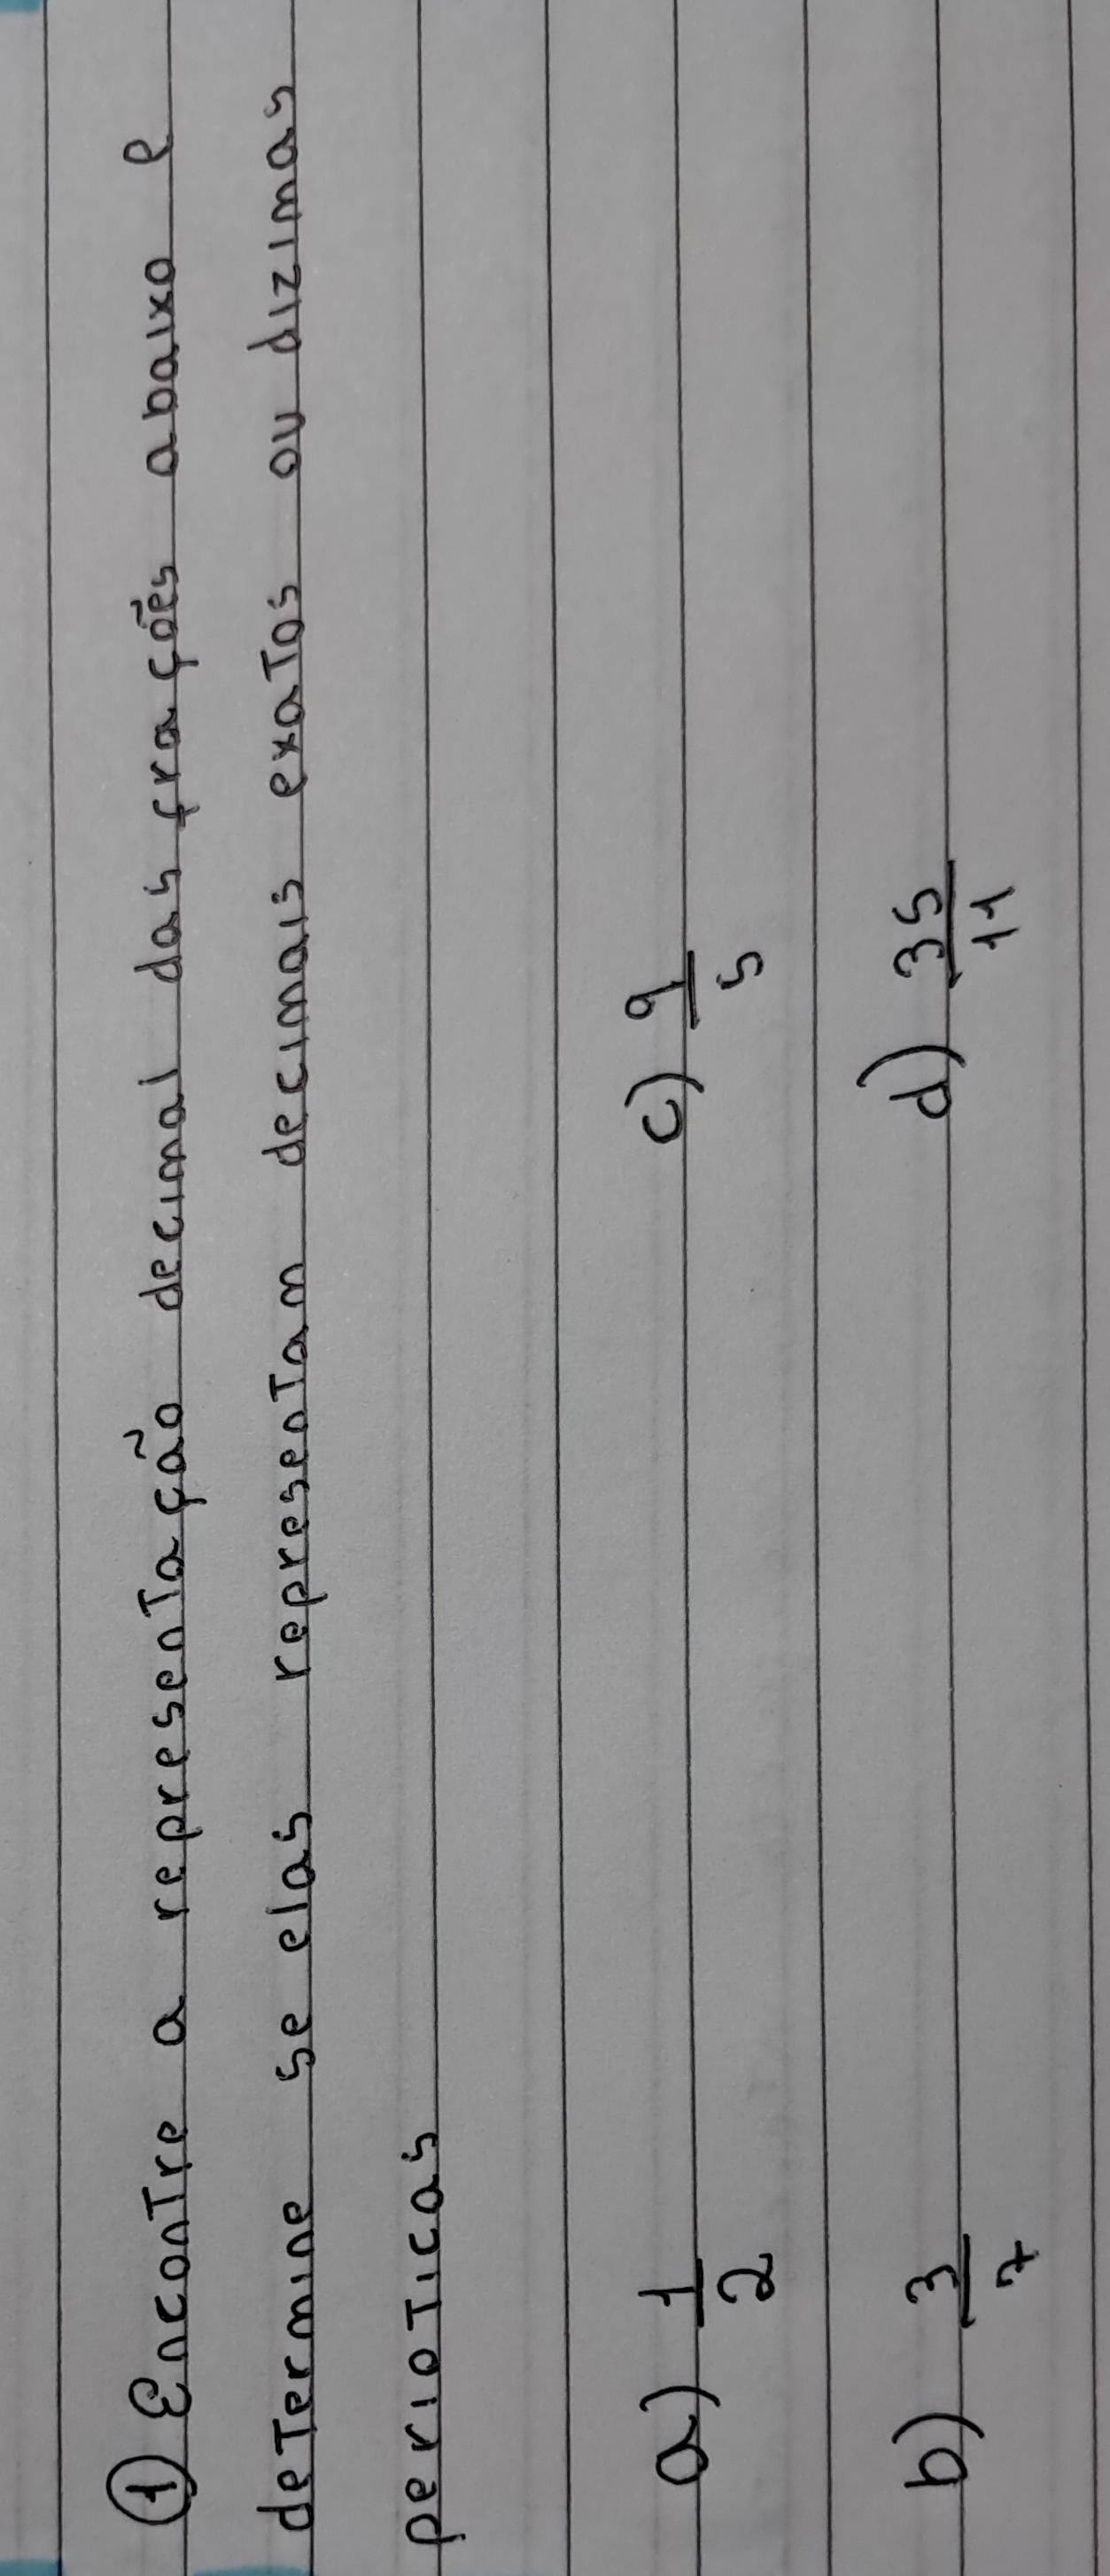 ① Encontre a representação decimal das frações abaixo e
determine se elas representam decimais exatos ou dizimas
perioticas
a) 1/2 c) 9/5
b) 3/7 d) 35/11